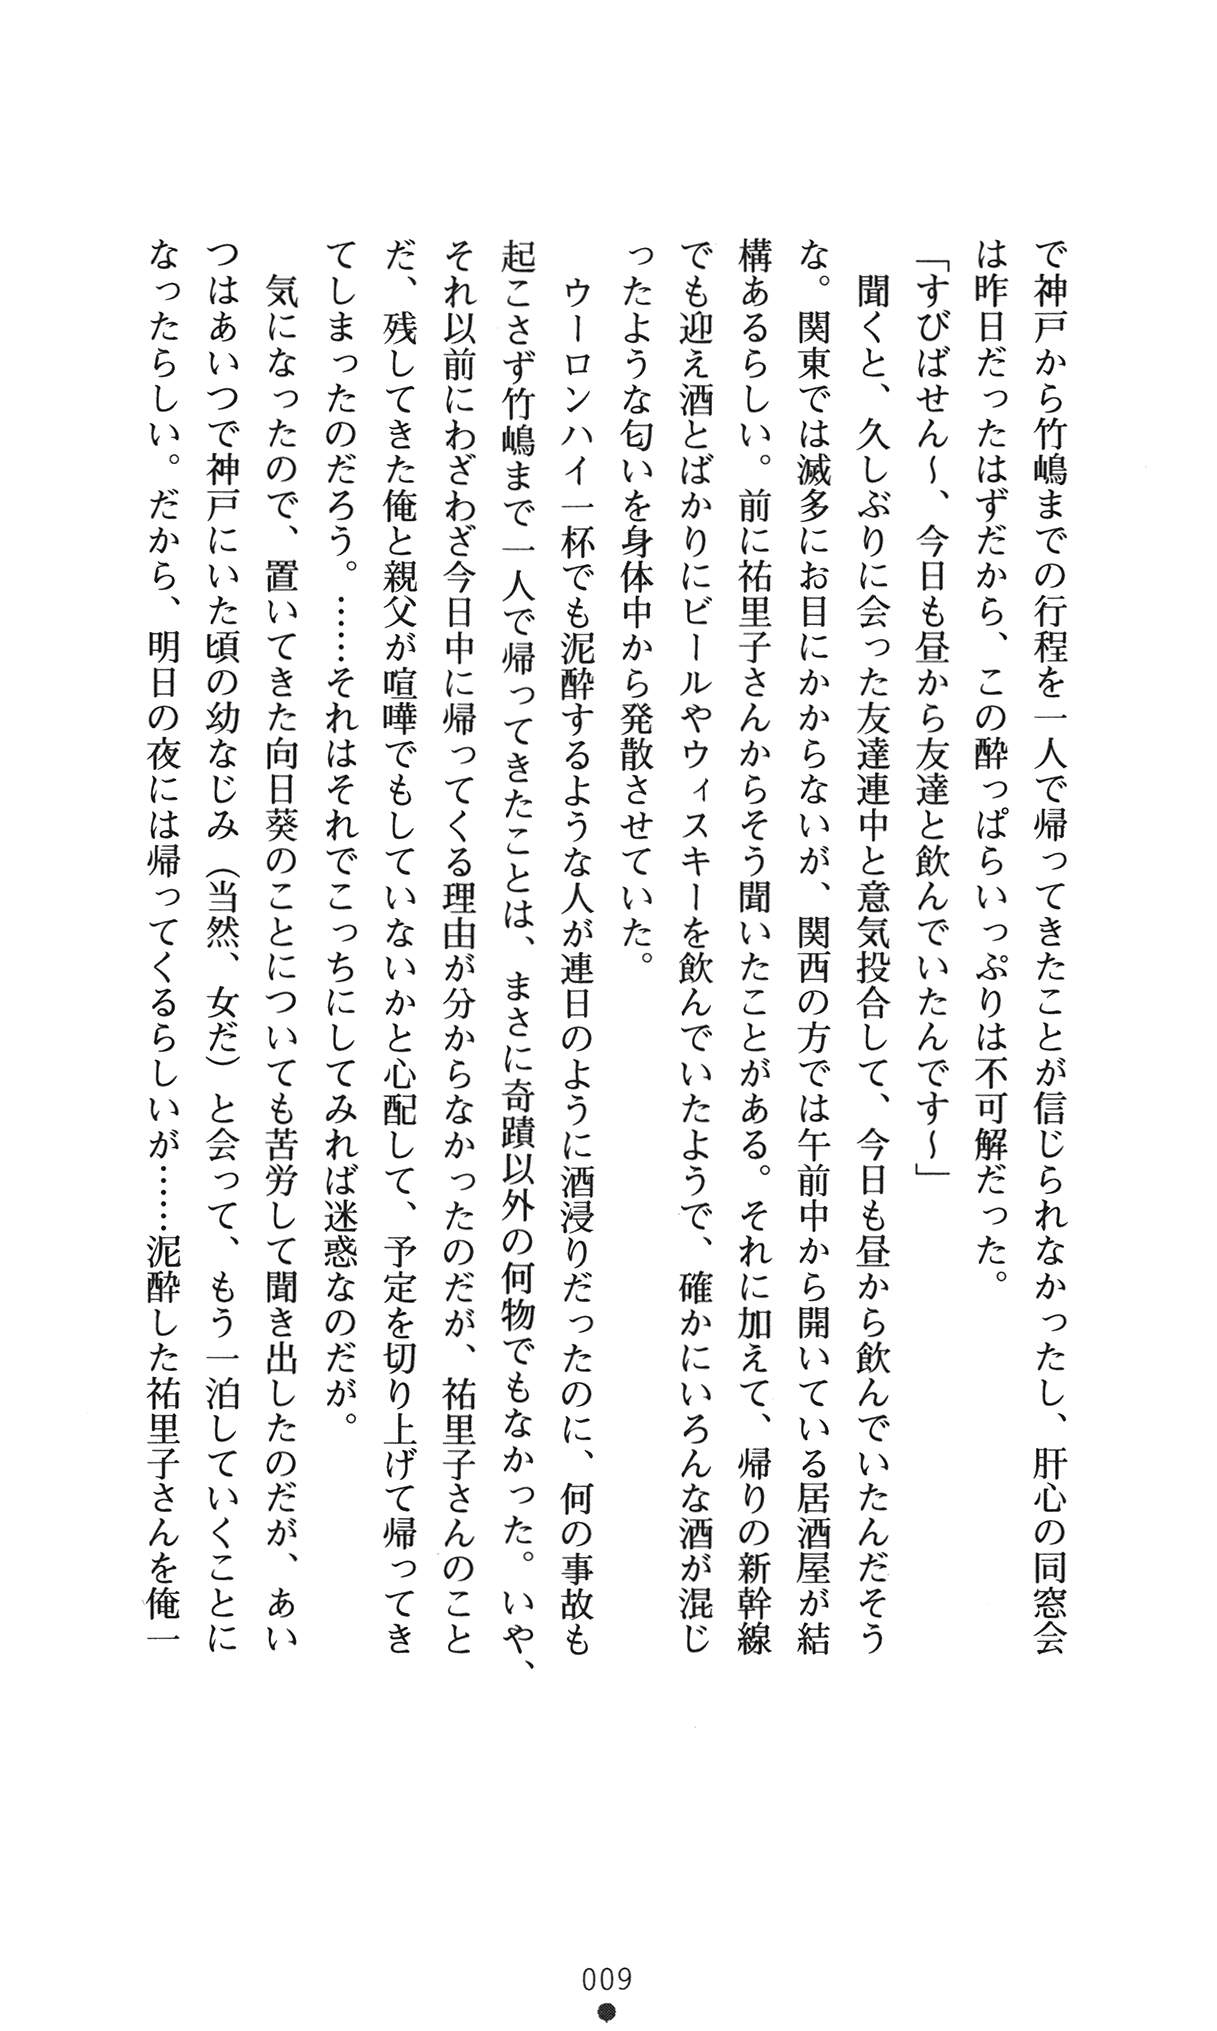 で神戸から竹嶋までの行程を一人で帰ってきたことが信じられなかったし、肝心の同窓会
は昨日だったはずだから、この酔っぱらいっぷりは不可解だった。
「すびばせん～、今日も昼から友達と飲んでいたんです～」
聞くと、久しぶりに会った友達連中と意気投合して、今日も昼から飲んでいたんだそう
な。関東では滅多にお目にかからないが、関西の方では午前中から開いている居酒屋が結
構あるらしい。前に祐里子さんからそう聞いたことがある。それに加えて、帰りの新幹線
でも迎え酒とばかりにビールやウィスキーを飲んでいたようで、確かにいろんな酒が混じ
ったような匂いを身体中から発散させていた。
ウーロンハイ一杯でも泥酔するような人が連日のように酒浸りだったのに、何の事故も
起こさず竹嶋まで一人で帰ってきたことは、まさに奇蹟以外の何物でもなかった。いや、
それ以前にわざわざ今日中に帰ってくる理由が分からなかったのだが、祐里子さんのこと
だ、残してきた俺と親父が喧嘩でもしていないかと心配して、予定を切り上げて帰ってき
てしまったのだろう。……それはそれでこっちにしてみれば迷惑なのだが。
気になったので、置いてきた向日葵のことについても苦労して聞き出したのだが、あい
つはあいつで神戸にいた頃の幼なじみ（当然、女だ）と会って、もう一泊していくことに
なったらしい。だから、明日の夜には帰ってくるらしいが……泥酔した祐里子さんを俺一
009